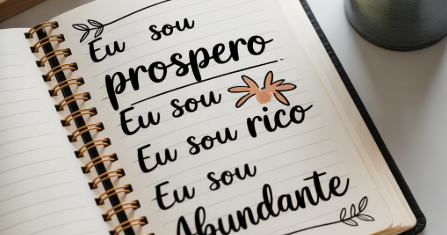 Eu sou
prospero
Eu sou
Eu sou rico
Eu sou
Abundante